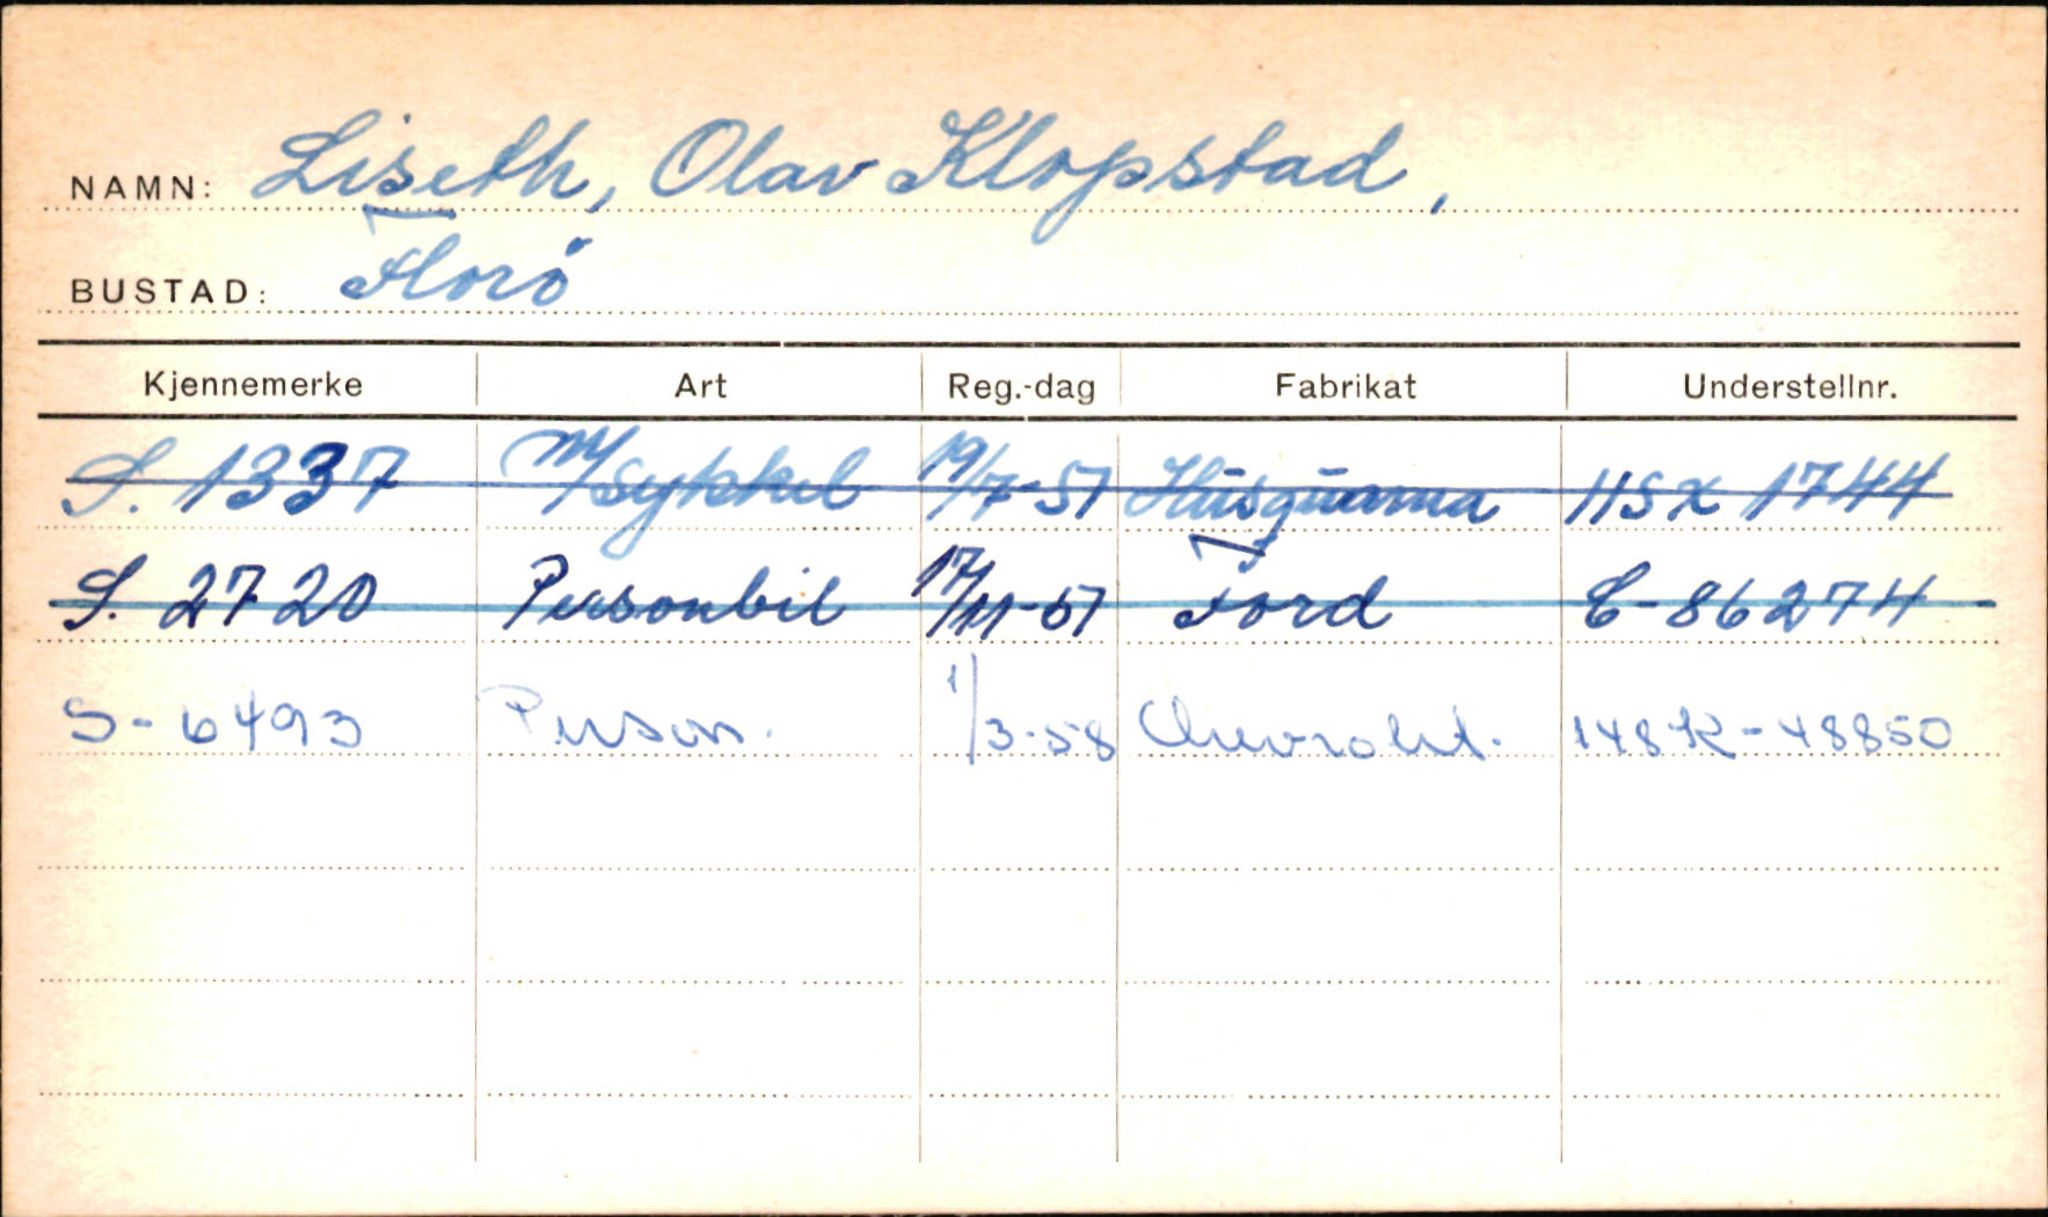 NAMN: Liseth, Olav Klopstad,
BUSTAD: Florö
Kjennemerke Art Reg.-dag Fabrikat Understellnr.
S. 1337 m/sykkel 19/7-57 Husquarna HSX 1744
S. 2720 Personbil 17/11-57 Ford C-86274
S-6493 Person. 1/3-58 Chevrolet. 148K-48850